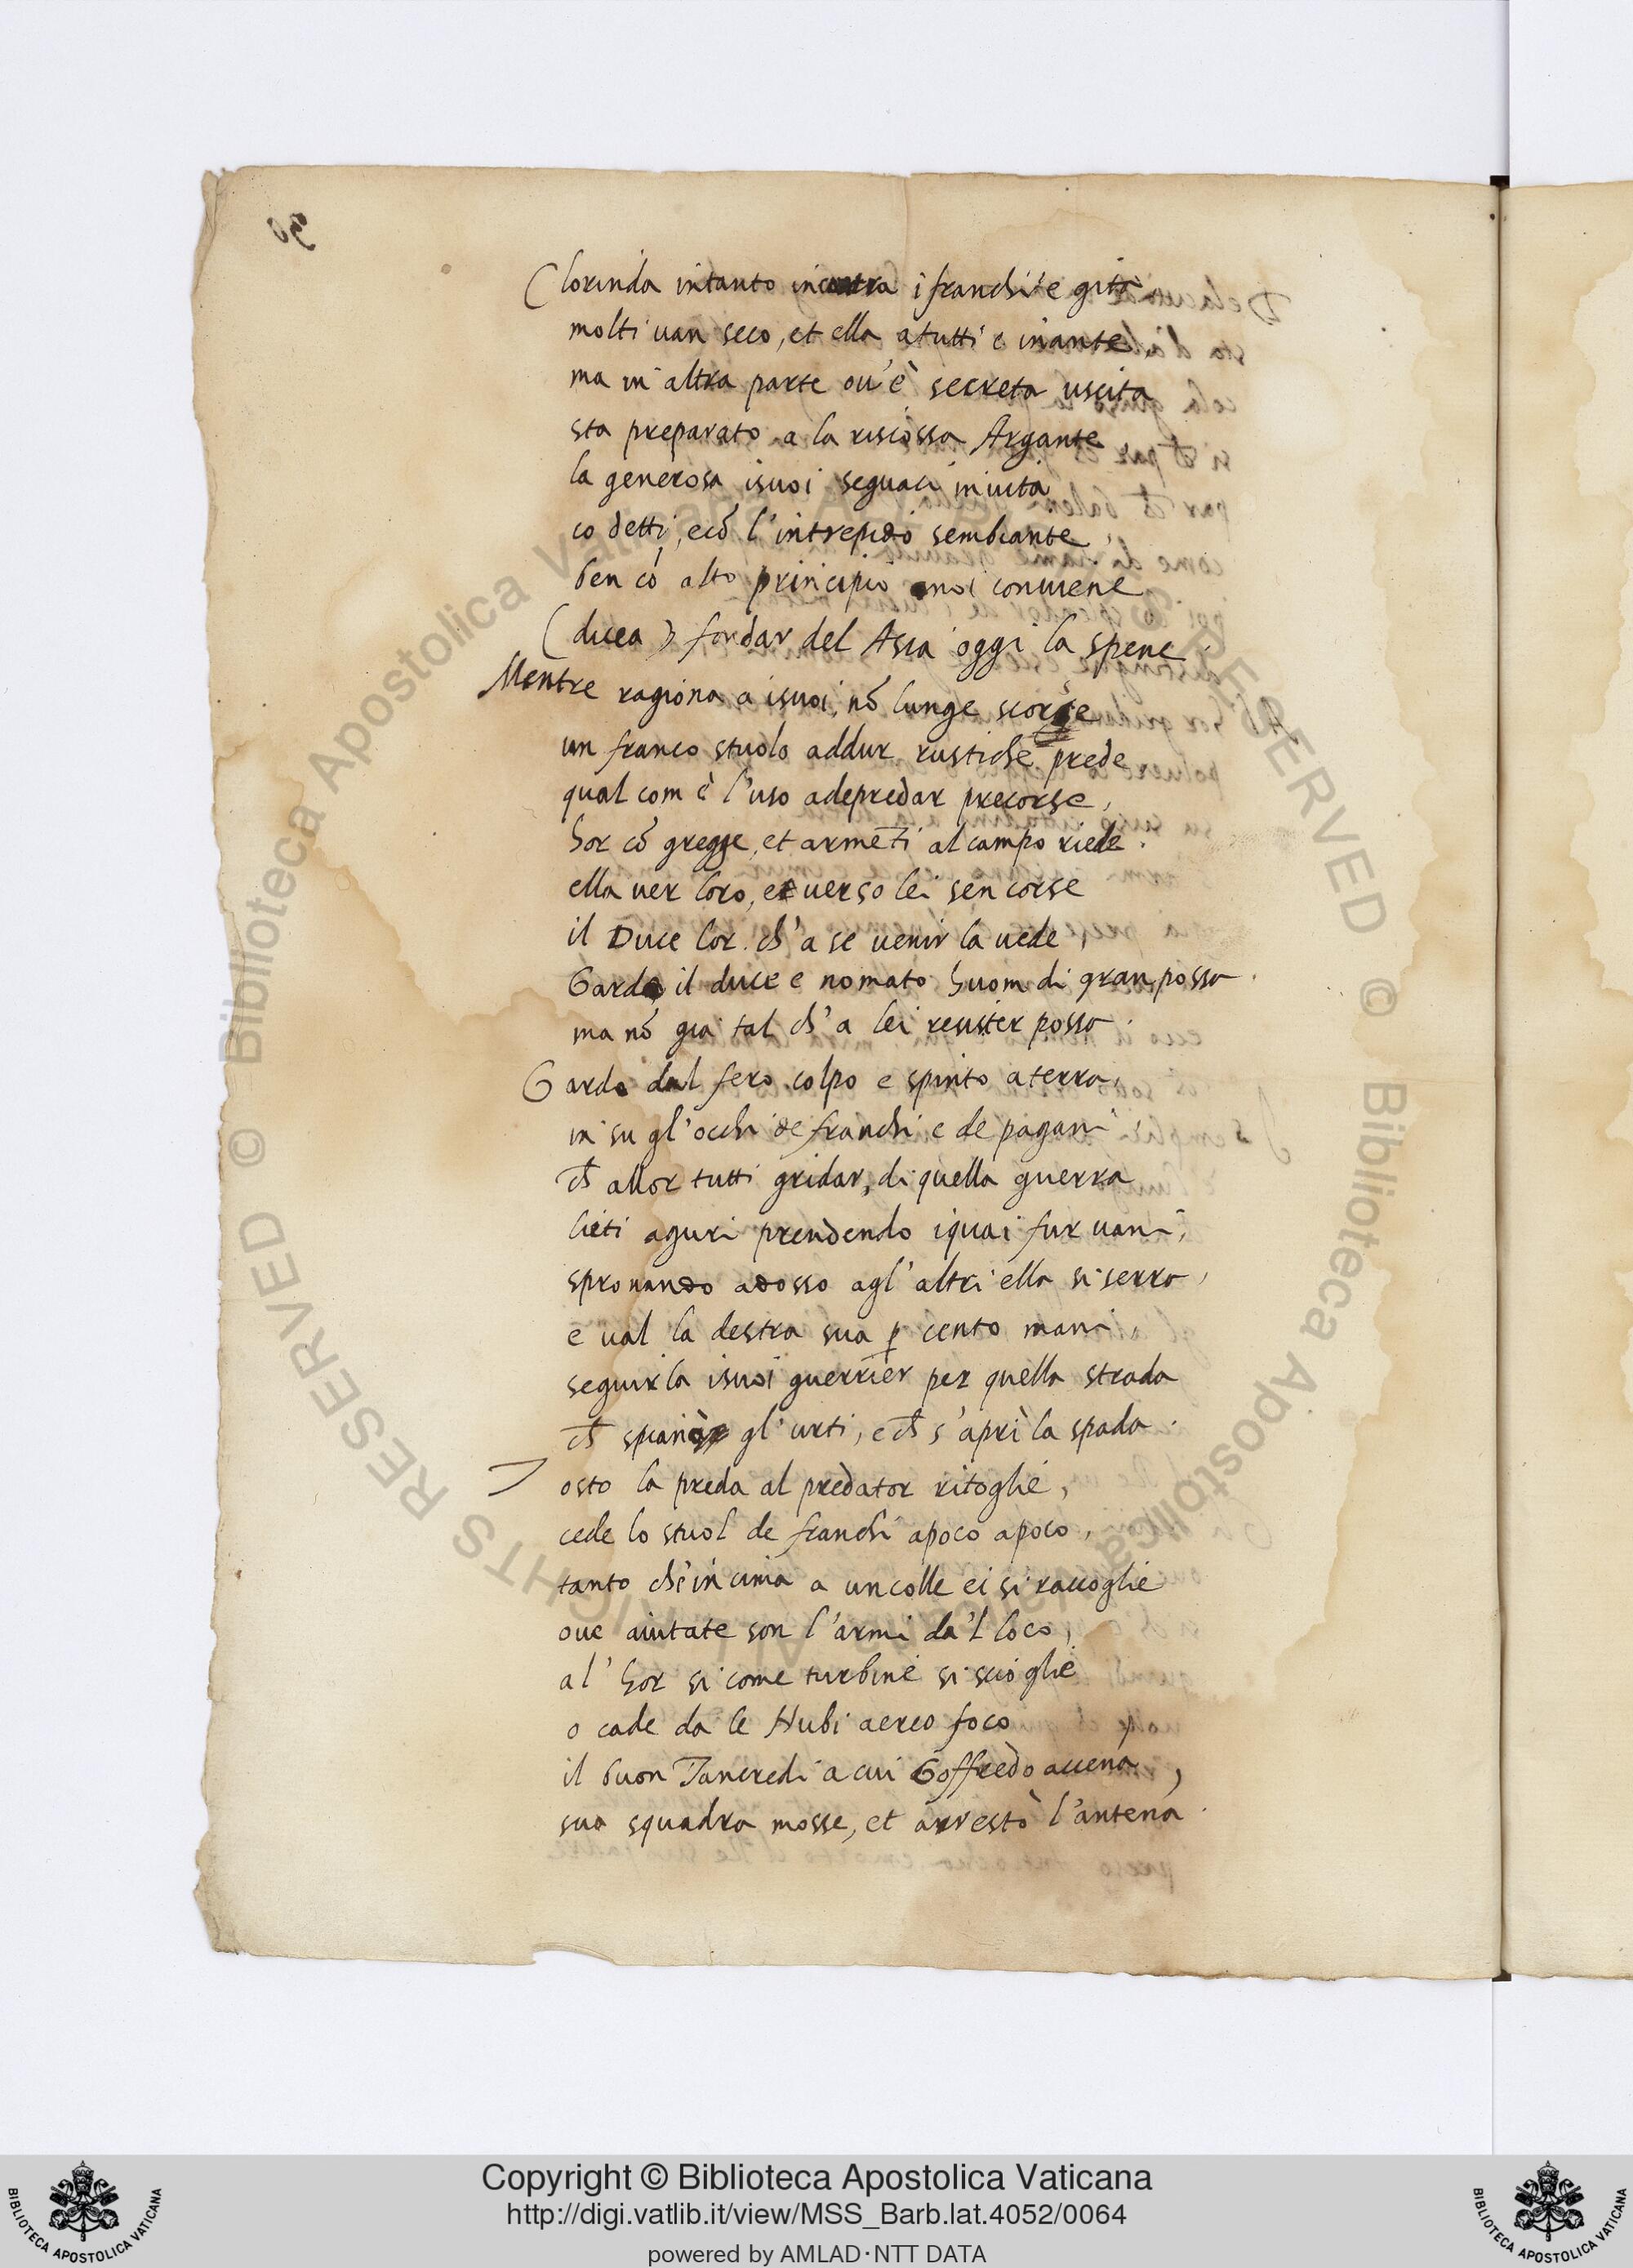 Clorinda intanto incontra i franchi e gita
molti uan seco, et ella a tutti e inante
ma in altra parte ou'è secreta uscita
sta preparato a la riscossa Argante
la generosa i suoi seguaci inuita
cõ detti, e cõ l'intrepido sembiante,
ben cõ alto principio a noi conuiene
(dicea) fondar del Asia oggi la spene.
Mentre ragiona a i suoi, nõ lunge scorse
un franco stuolo addur rustiche prede
qual com è l'uso a depredar precorse,
hor cõ gregge, et armẽti al campo riede.
ella uer loro, e uerso lei sen corse
il Duce lor. ch'a se uenir la uede,
Gardo il duce e nomato huom di gran possa.
ma nõ gia tal ch'a lei resister possa.
Gardo dal fero colpo e spinto a terra,
in su gl'occhi de franchi e de pagani
ch allor tutti gridar, di quella guerra
lieti aguri prendendo i quai fur uani,
spronando adosso agl'altri ella si serra,
e ual la destra sua ꝑ cento mani,
seguirla i suoi guerrier per quella strada
ch spianò gl'urti, e ch s'aprì la spada.
Tosto la preda al predator ritoglie,
cede lo stuol de franchi a poco a poco,
tanto ch'in cima a un colle ei si raccoglie
oue aiutate son l'armi da'l loco,
al'hor si come turbine si scioglie
o cade da le Nubi aereo foco
il buon Tancredi a cui Goffredo accena,
sua squadra mosse, et arrestò l'antena.
30
© Biblioteca Apostolica Vaticana
RIGHTS RESERVED
Copyright © Biblioteca Apostolica Vaticana
http://digi.vatlib.it/view/MSS_Barb.lat.4052/0064
powered by AMLAD·NTT DATA
BIBLIOTECA APOSTOLICA VATICANA
BIBLIOTECA APOSTOLICA VATICANA